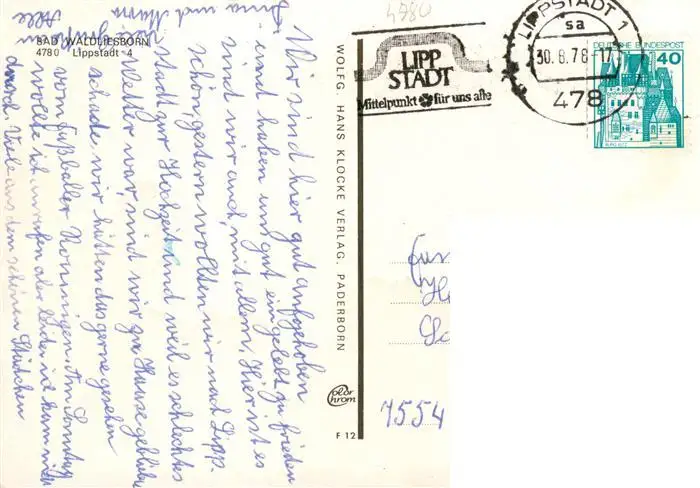 BAD WALDLIESBORN
4780 Lippstadt 4
4780
LIPP
STADT
Mittelpunkt für uns alle
LIPPSTADT 1
sa
30.8.78-17
478
DEUTSCHE BUNDESPOST
40
BURG ELTZ
Wir sind hier gut aufgehoben
und haben uns gut eingelebt zufrieden
sind wir auch, mit allem. Hier ist es
schön, gestern wollten wir nach Lipp-
stadt zur Hochzeit und weil es schlechtes
Wetter war, sind wir zu Hause geblieben
schade, wir hätten das gerne gesehen
vom Fußballer Am Sonntag
wollte ich anrufen aber leider nicht
durch. Viele aus dem schönen Städtchen
viele Grüße
Anna und Maria
WOLFG. HANS KLOCKE VERLAG, PADERBORN
Color
chrom
F 12
7554